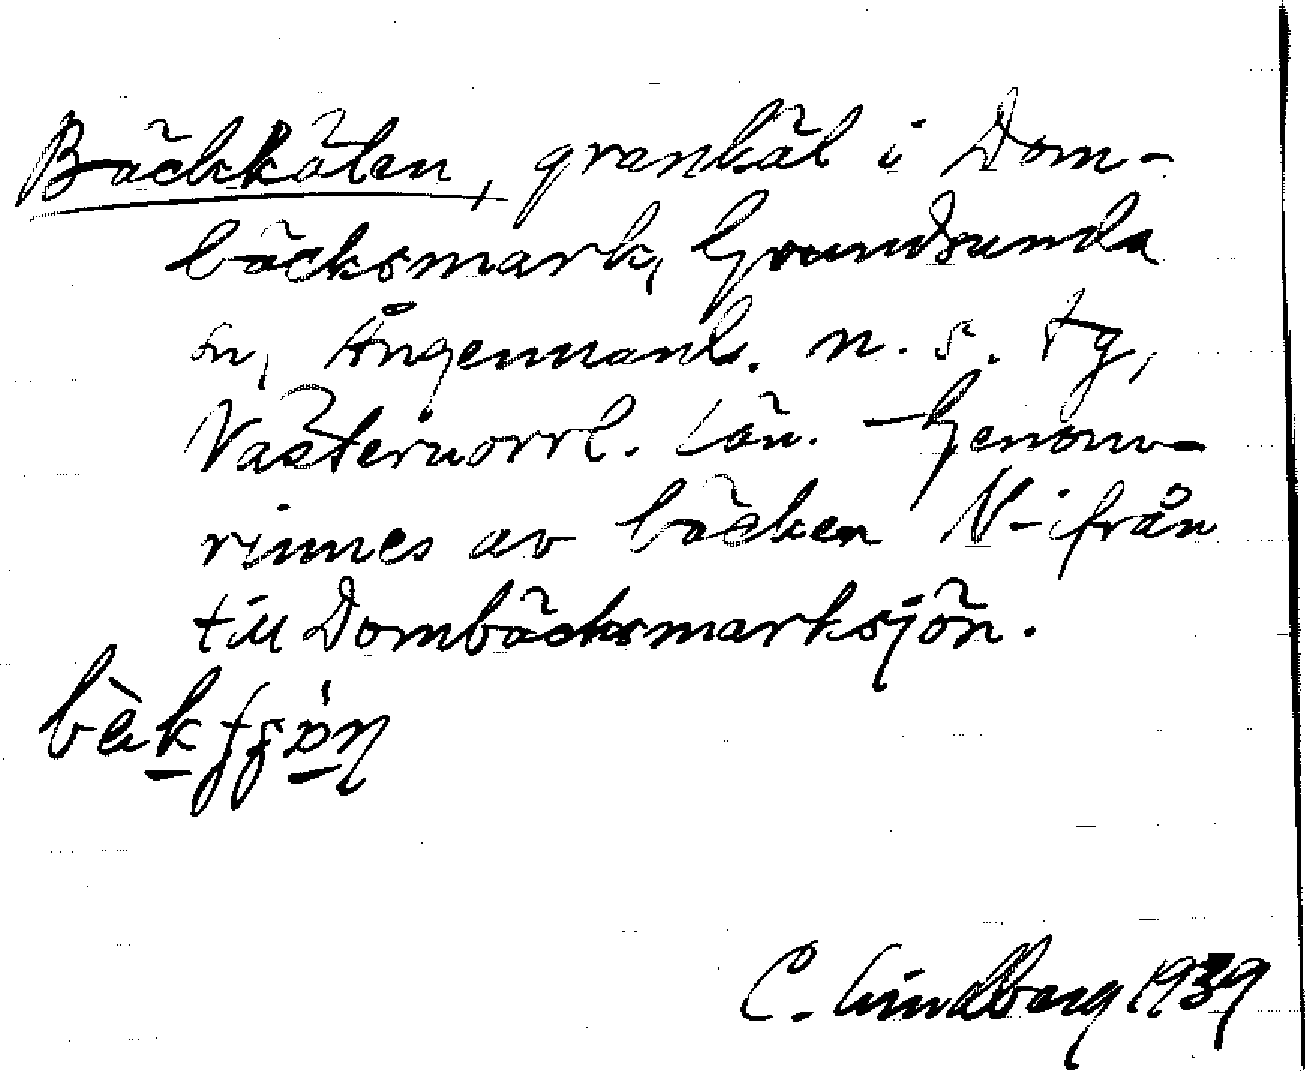 Bäckkälen, grankäl i Dom-
bäcksmark, Grundsunda
sn, Ångermanl. n. s. tg,
Västernorrl. län. - Genom-
rinnes av bäcken N-ifrån
till Dombäcksmarksjön.
C. Lindberg 1939